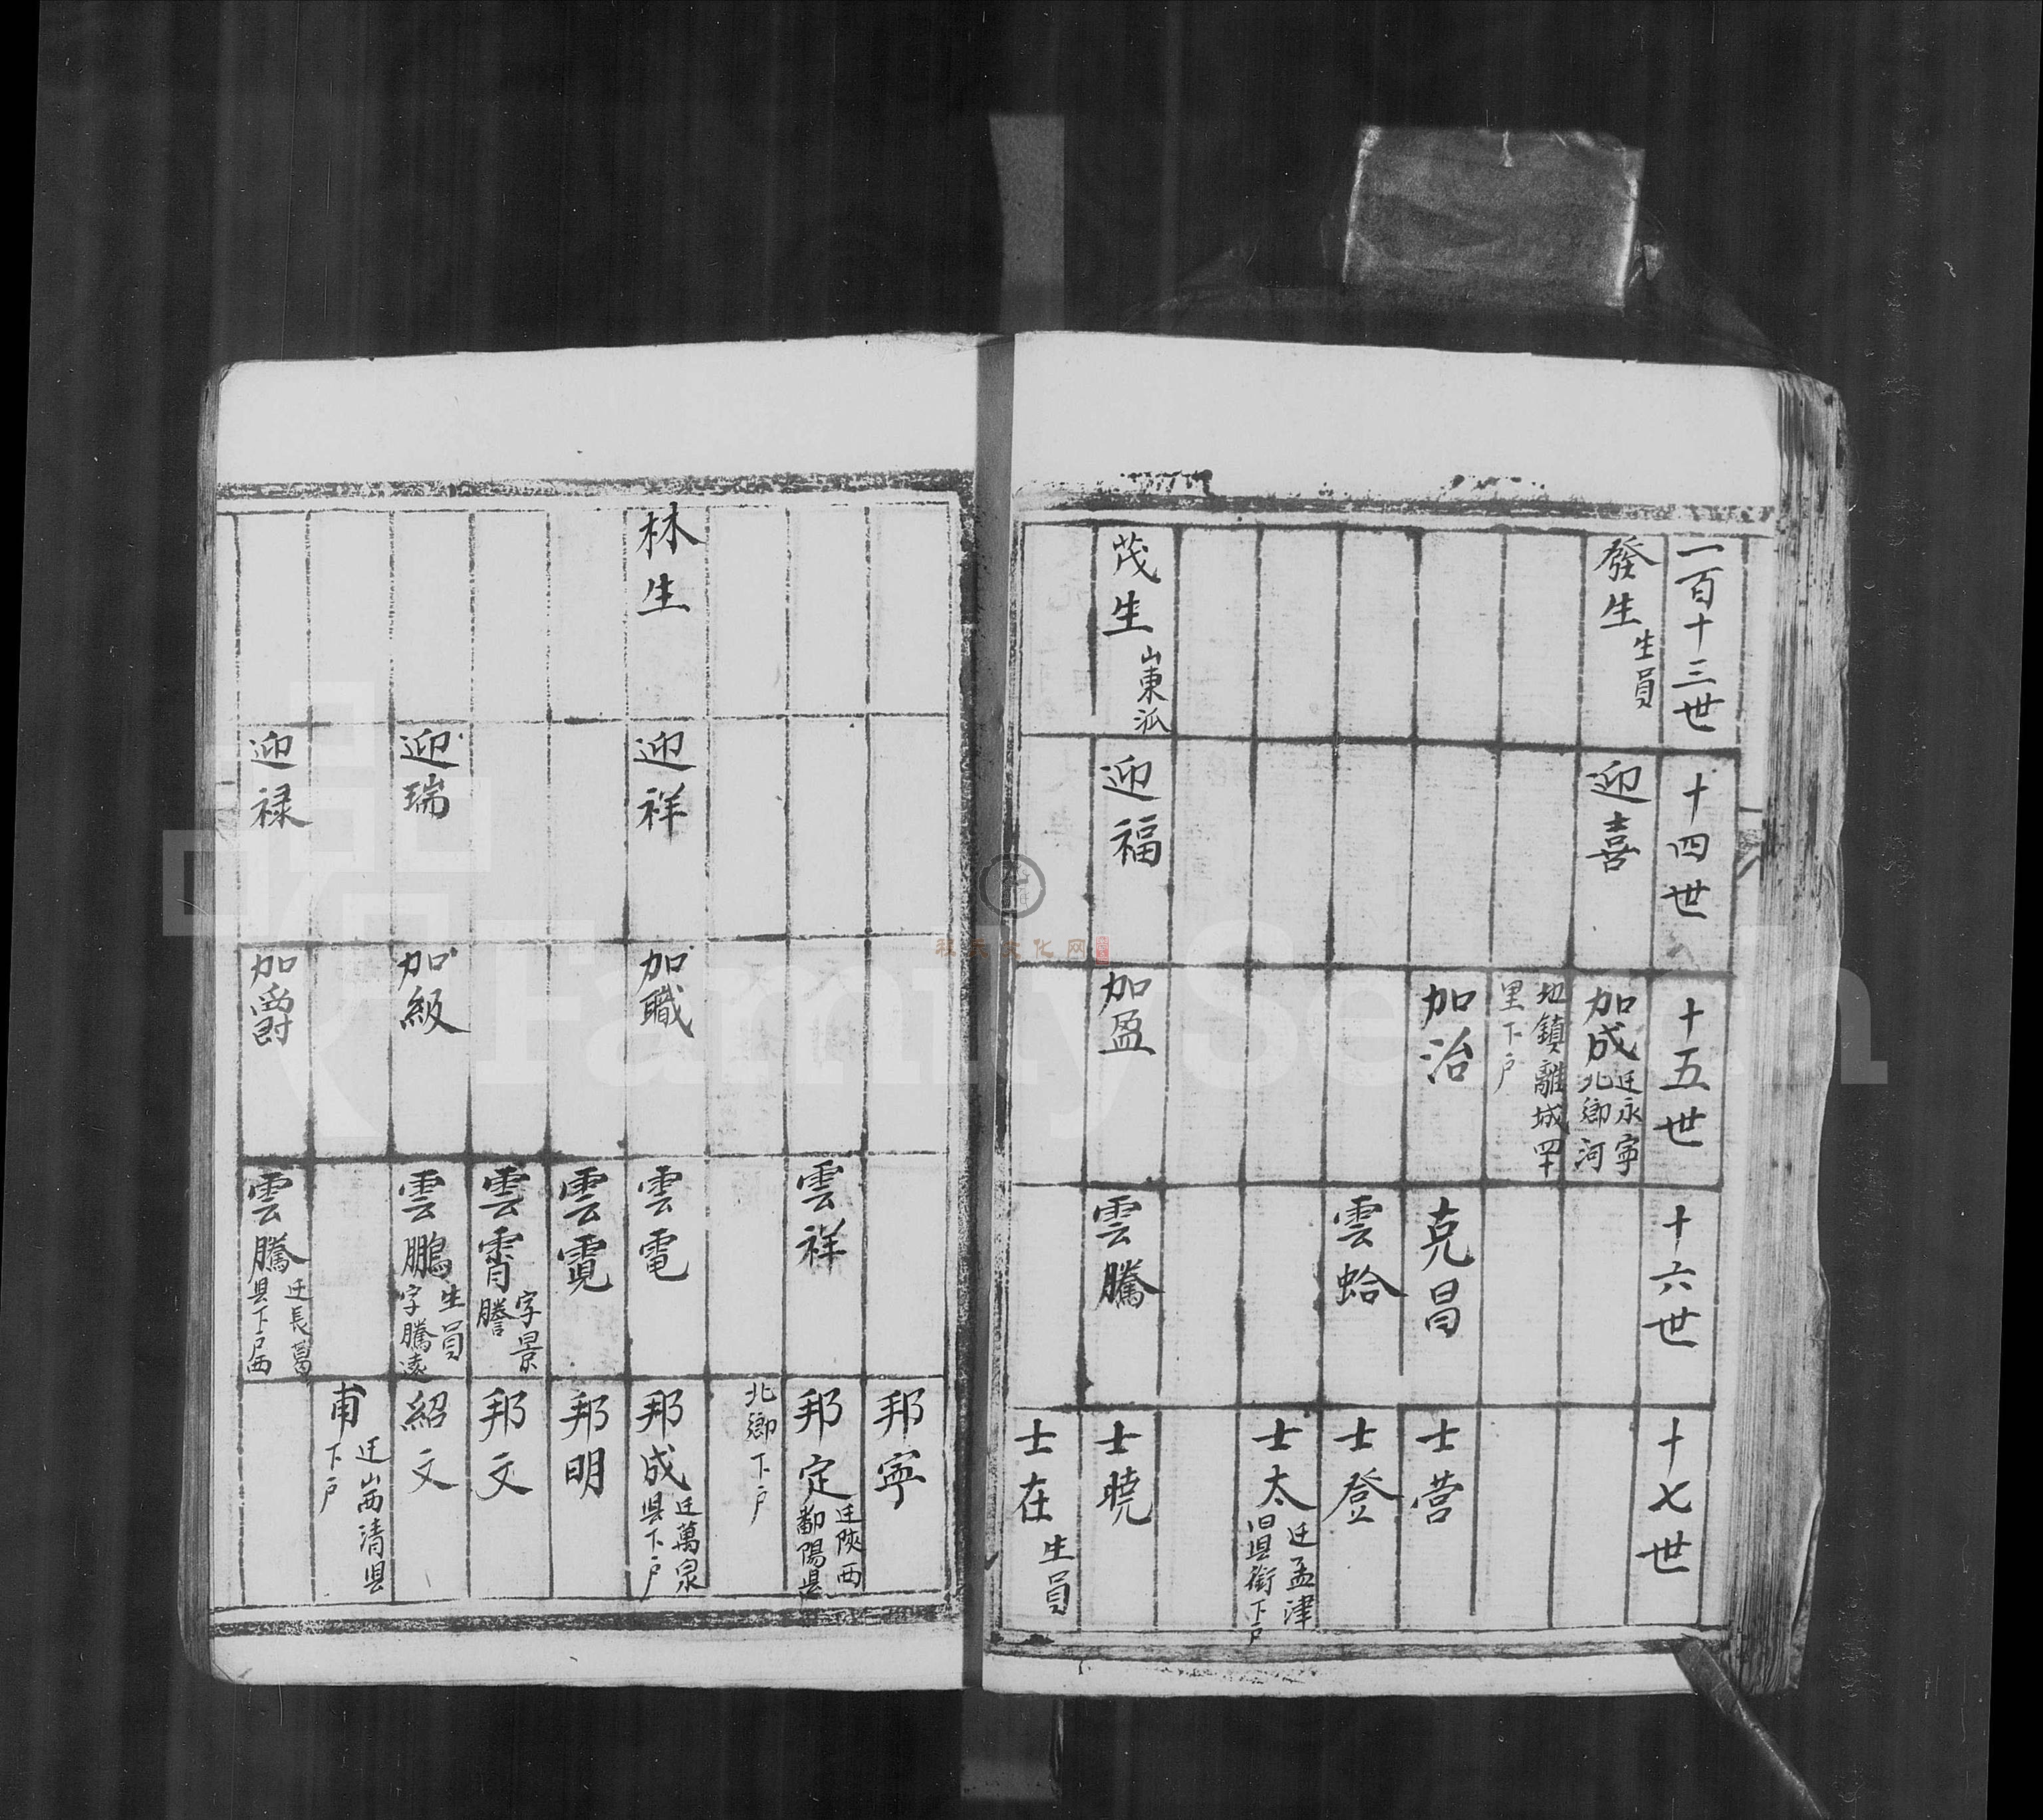 一百十三世
十四世
十五世
十六世
十七世
發生 生員
迎喜
加成 迁永寧北鄉河
地鎮離城四十里下户
加治
克昌
士营
雲蛤
士登
士太 迁孟津旧县街下户
茂生 山東派
迎福
加盈
雲騰
士曉
士在 生員
邦寧
雲祥
邦定 迁陝西鄱陽县
北鄉下户
林生
迎祥
加職
雲電
邦成 迁萬泉县下户
雲霓
邦明
雲霄 字景謄
邦文
迎瑞
加級
雲鵬 生員字騰遠
紹文
甫 迁山西清县下户
迎禄
加爵
雲騰 迁長葛县下户西
程氏文化网
FamilySearch